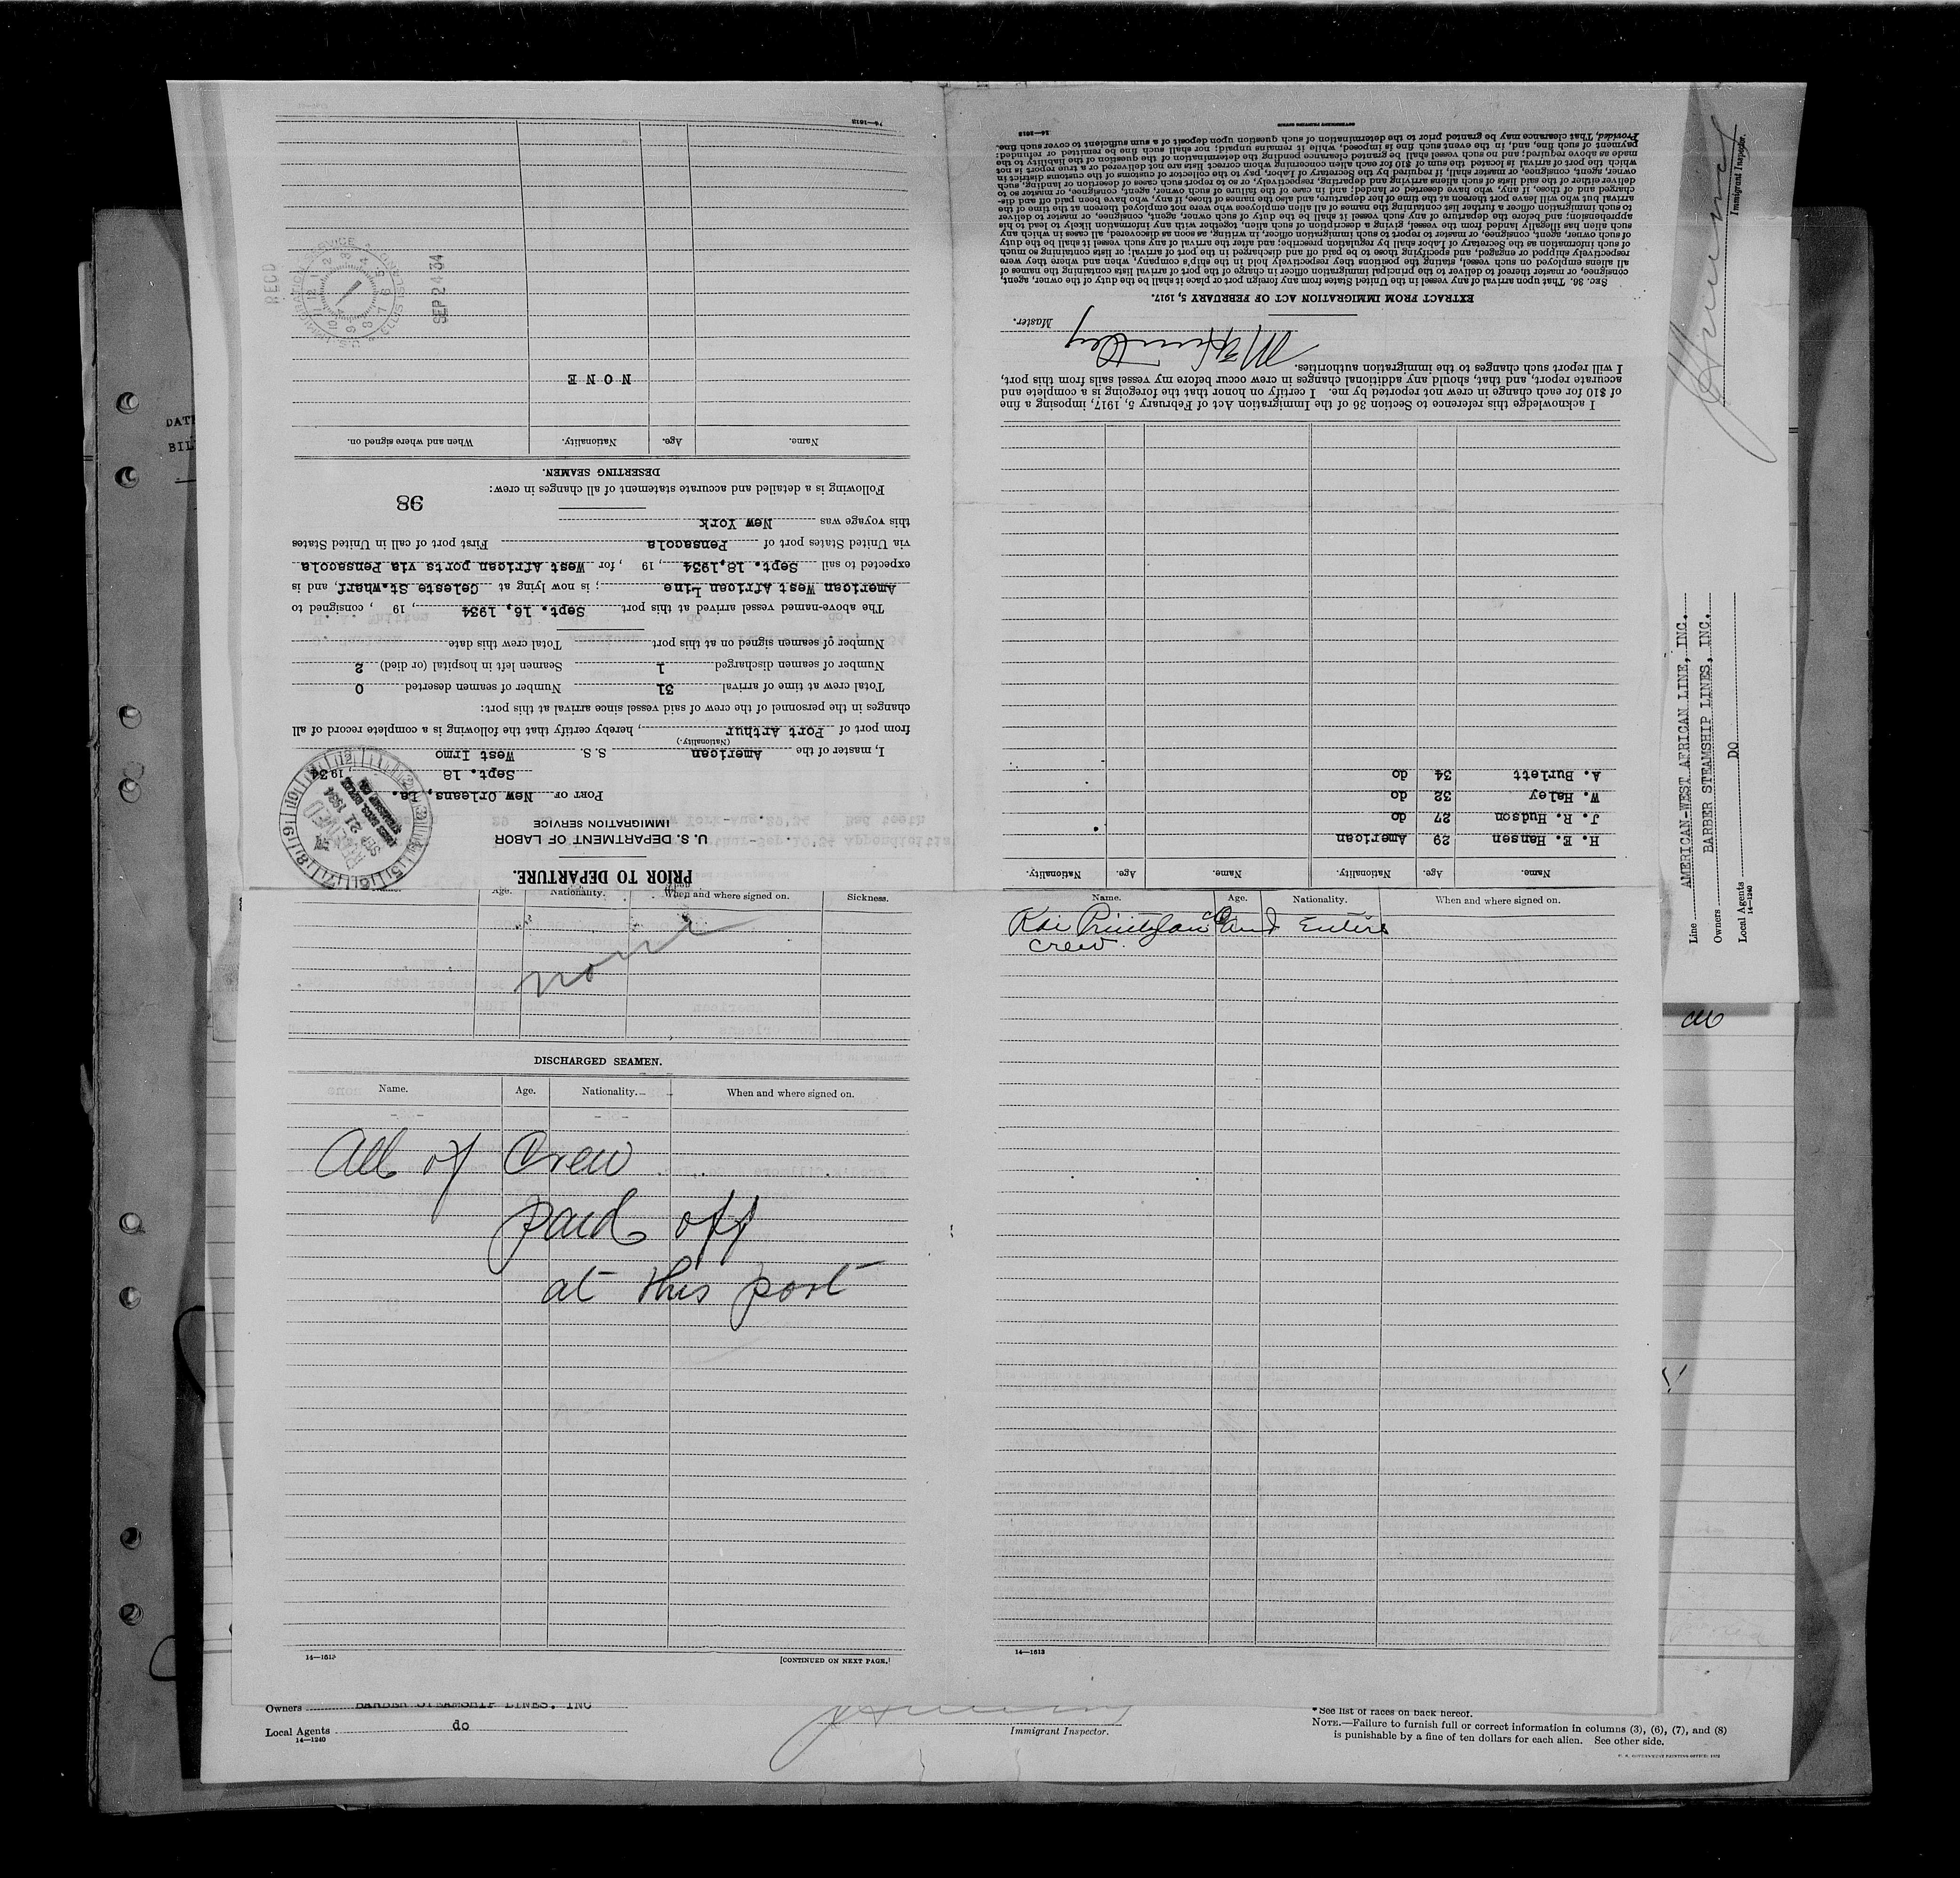 PRIOR TO DEPARTURE.
U. S. DEPARTMENT OF LABOR
IMMIGRATION SERVICE
PORT OF New Orleans, La.
Sept. 18, 1934
I, master of the American S. S. West Irmo
(Nationality.)
from port of Port Arthur, hereby certify that the following is a complete record of all
changes in the personnel of the crew of said vessel since arrival at this port:
Total crew at time of arrival 31 Number of seamen deserted 0
Number of seamen discharged 1 Seamen left in hospital (or died) 2
Number of seamen signed on at this port Total crew this date
The above-named vessel arrived at this port Sept. 16, 1934, 19 , consigned to
American West African Line; is now lying at Celeste St.Wharf, and is
expected to sail Sept. 18,1934, 19 , for West African ports via Pensacola
via United States port of Pensacola First port of call in United States
this voyage was New York
98
Following is a detailed and accurate statement of all changes in crew:
DESERTING SEAMEN.
Name. Age. Nationality. When and where signed on.
NONE
REC'D
U.S. IMMIGRATION SERVICE ELLIS ISLAND
SEP 24 34
14—1613
Name. Age. Nationality. Name. Age. Nationality.
H. E. Hansen 29 American
J. R. Hudson 27 do
W. Haley 32 do
A. Burlett 34 do
I acknowledge this reference to Section 36 of the Immigration Act of February 5, 1917, imposing a fine
of $10 for each change in crew not reported by me. I certify on honor that the foregoing is a complete and
accurate report, and that, should any additional changes in crew occur before my vessel sails from this port,
I will report such changes to the immigration authorities.
Master.
EXTRACT FROM IMMIGRATION ACT OF FEBRUARY 5, 1917.
SEC. 36. That upon arrival of any vessel in the United States from any foreign port or place it shall be the duty of the owner, agent,
consignee, or master thereof to deliver to the principal immigration officer in charge of the port of arrival lists containing the names of
all aliens employed on such vessel, stating the positions they respectively hold in the ship's company, when and where they were
respectively shipped or engaged, and specifying those to be paid off and discharged in the port of arrival; or lists containing so much
of such information as the Secretary of Labor shall by regulation prescribe; and after the arrival of any such vessel it shall be the duty
of such owner, agent, consignee, or master to report to such immigration officer, in writing, as soon as discovered, all cases in which any
such alien has illegally landed from the vessel, giving a description of such alien, together with any information likely to lead to his
apprehension; and before the departure of any such vessel it shall be the duty of such owner, agent, consignee, or master to deliver
to such immigration officer a further list containing the names of all alien employees who were not employed thereon at the time of the
arrival but who will leave port thereon at the time of her departure, and also the names of those, if any, who have been paid off and dis-
charged and of those, if any, who have deserted or landed; and in case of the failure of such owner, agent, consignee, or master so to
deliver either of the said lists of such aliens arriving and departing, respectively, or so to report such cases of desertion or landing, such
owner, agent, consignee, or master, shall, if required by the Secretary of Labor, pay to the collector of customs of the customs district in
which the port of arrival is located the sum of $10 for each alien concerning whom correct lists are not delivered or a true report is not
made as above required; and no such vessel shall be granted clearance pending the determination of the question of the liability to the
payment of such fine, and, in the event such fine is imposed, while it remains unpaid; nor shall such fine be remitted or refunded:
Provided, That clearance may be granted prior to the determination of such question upon deposit of a sum sufficient to cover such fine.
14—1613
Immigrant Inspector.
Line AMERICAN-WEST AFRICAN LINE, INC.
Owners BARBER STEAMSHIP LINES, INC.
Local Agents DO
14—1240
Age. Nationality. When and where signed on. Sickness.
none
DISCHARGED SEAMEN.
Name. Age. Nationality. When and where signed on.
All of Crew
paid off
at this port
14—1613
[CONTINUED ON NEXT PAGE.]
Name. Age. Nationality. When and where signed on.
and Entire
crew.
14—1613
Owners BARBER STEAMSHIP LINES, INC
Local Agents do
14—1240
Immigrant Inspector.
*See list of races on back hereof.
NOTE.—Failure to furnish full or correct information in columns (3), (6), (7), and (8)
is punishable by a fine of ten dollars for each alien. See other side.